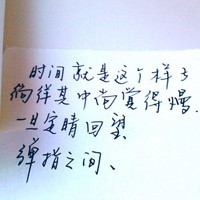 时间就是这个样子
徜徉其中尚觉得慢.
一旦定睛回望
弹指之间、